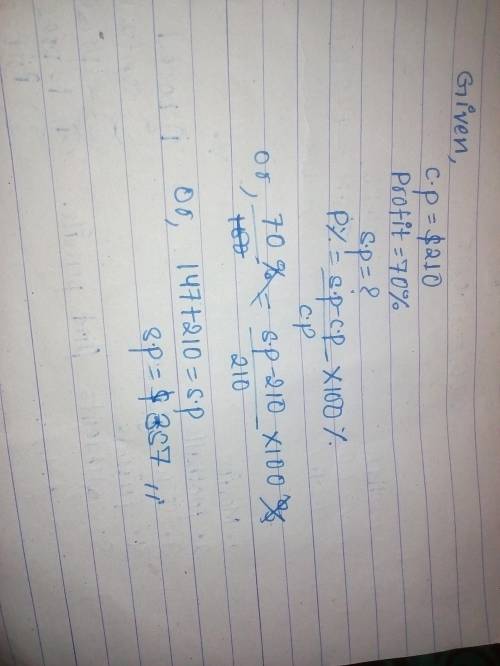 Given,
C.P = $210
Profit = 70%
S.P = ?
P% = S.P - C.P / C.P × 100%
Or, 70% = S.P - 210 / 210 × 100%
Or, 147 + 210 = S.P
S.P = $357 //